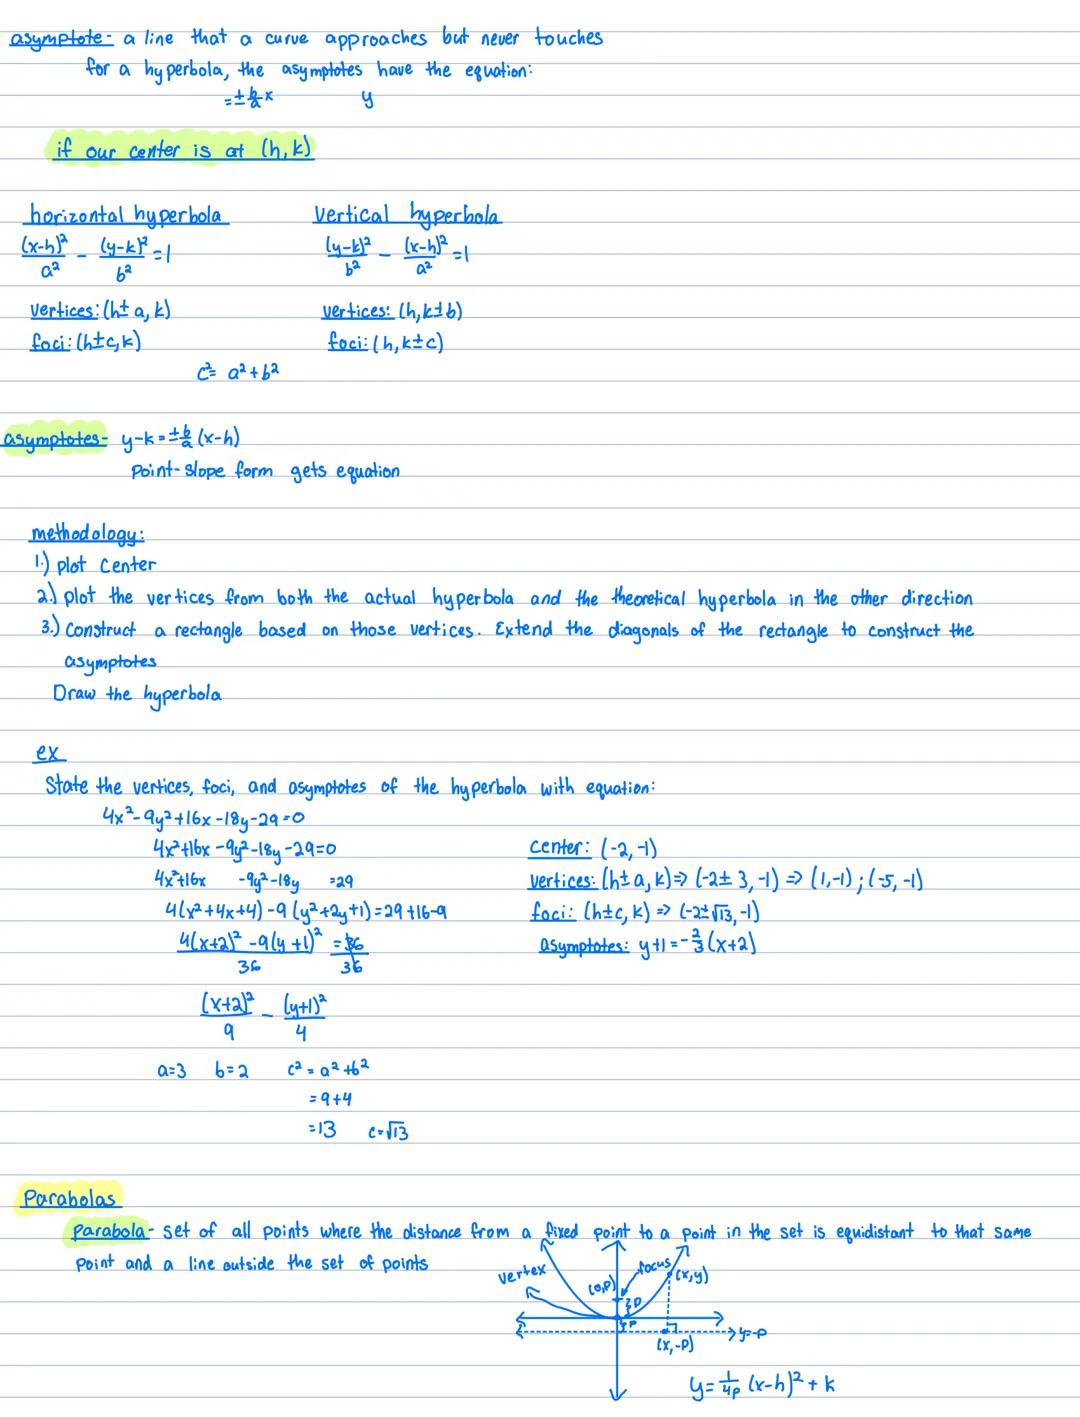 asymptote- a line that a curve approaches but never touches
for a hyperbola, the asymptotes have the equation:
=±b/a x y
if our center is at (h,k)
horizontal hyperbola vertical hyperbola
(x-h)²/a² - (y-k)²/b² =1 (y-k)²/b² - (x-h)²/a² =1
vertices: (h±a,k) vertices: (h,k±b)
foci: (h±c,k) foci: (h,k±c)
c²= a²+b²
asymptotes- y-k=±b/a (x-h)
Point-slope form gets equation
methodology:
1.) plot center
2.) plot the vertices from both the actual hyperbola and the theoretical hyperbola in the other direction
3.) Construct a rectangle based on those vertices. Extend the diagonals of the rectangle to construct the
asymptotes
Draw the hyperbola
ex
State the vertices, foci, and asymptotes of the hyperbola with equation:
4x²-9y²+16x-18y-29=0
4x²+16x-9y²-18y-29=0
4x²+16x -9y²-18y =29
4(x²+4x+4)-9(y²+2y+1)=29+16-9
4(x+2)²-9(y+1)²/36 =36/36
(x+2)²/9 - (y+1)²/4
a=3 b=2 c²=a²+b²
=9+4
=13 c=√13
center: (-2,-1)
vertices: (h±a,k)=> (-2±3,-1) => (1,-1);(-5,-1)
foci: (h±c,k) => (-2±√13,-1)
asymptotes: y+1=-2/3(x+2)
Parabolas
Parabola- set of all points where the distance from a fixed point to a point in the set is equidistant to that same
point and a line outside the set of points
vertex
focus
(0,p)
(x,y)
}p
}p
y=-p
(x,-p)
y=1/4p (x-h)²+k